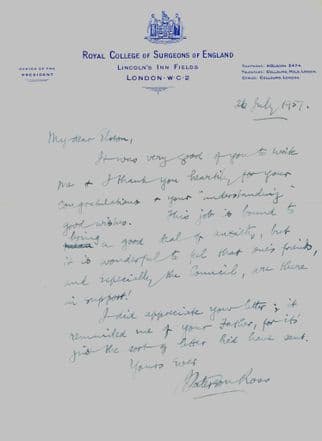 ROYAL COLLEGE OF SURGEONS OF ENGLAND
LINCOLN'S INN FIELDS
LONDON·W·C·2
OFFICE OF THE
PRESIDENT
TELEPHONE: HOLBORN 3474
TELEGRAMS: COLLSURG, HOLB, LONDON
CABLES: COLLSURG, LONDON
26 July 1957.
My dear
It was very good of you to write
me & I thank you heartily for your
congratulations & your "understanding"
good wishes. This job is bound to
bring a good deal of anxiety, but
it is wonderful to feel that one's friends,
and especially the Council, are there
in support!
I did appreciate your letter; it
reminded me of your Father, for it's
just the sort of letter he'd have sent.
Yours ever
Paterson Ross